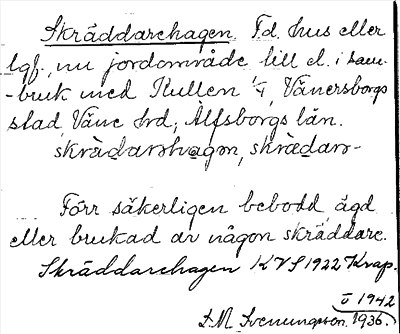 Skräddarehagen. F.d. hus eller
lgf., nu jordområde till el. i sam-
-bruk med Kullen 1/4, Vänersborgs
stad, Väne hrd, Älfsborgs län.
skrädarshagen, skrædars-
Förr säkerligen bebodd, ägd
eller brukad av någon skräddare.
Skräddarehagen KVS 1922 Krap.
1942
D. M. Svenungsson. 1936.